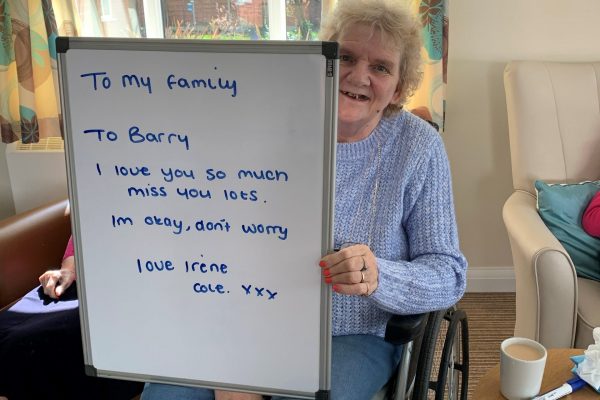 To my family
To Barry
I love you so much
miss you lots.
Im okay, don't worry
love Irene
Cole. xxx